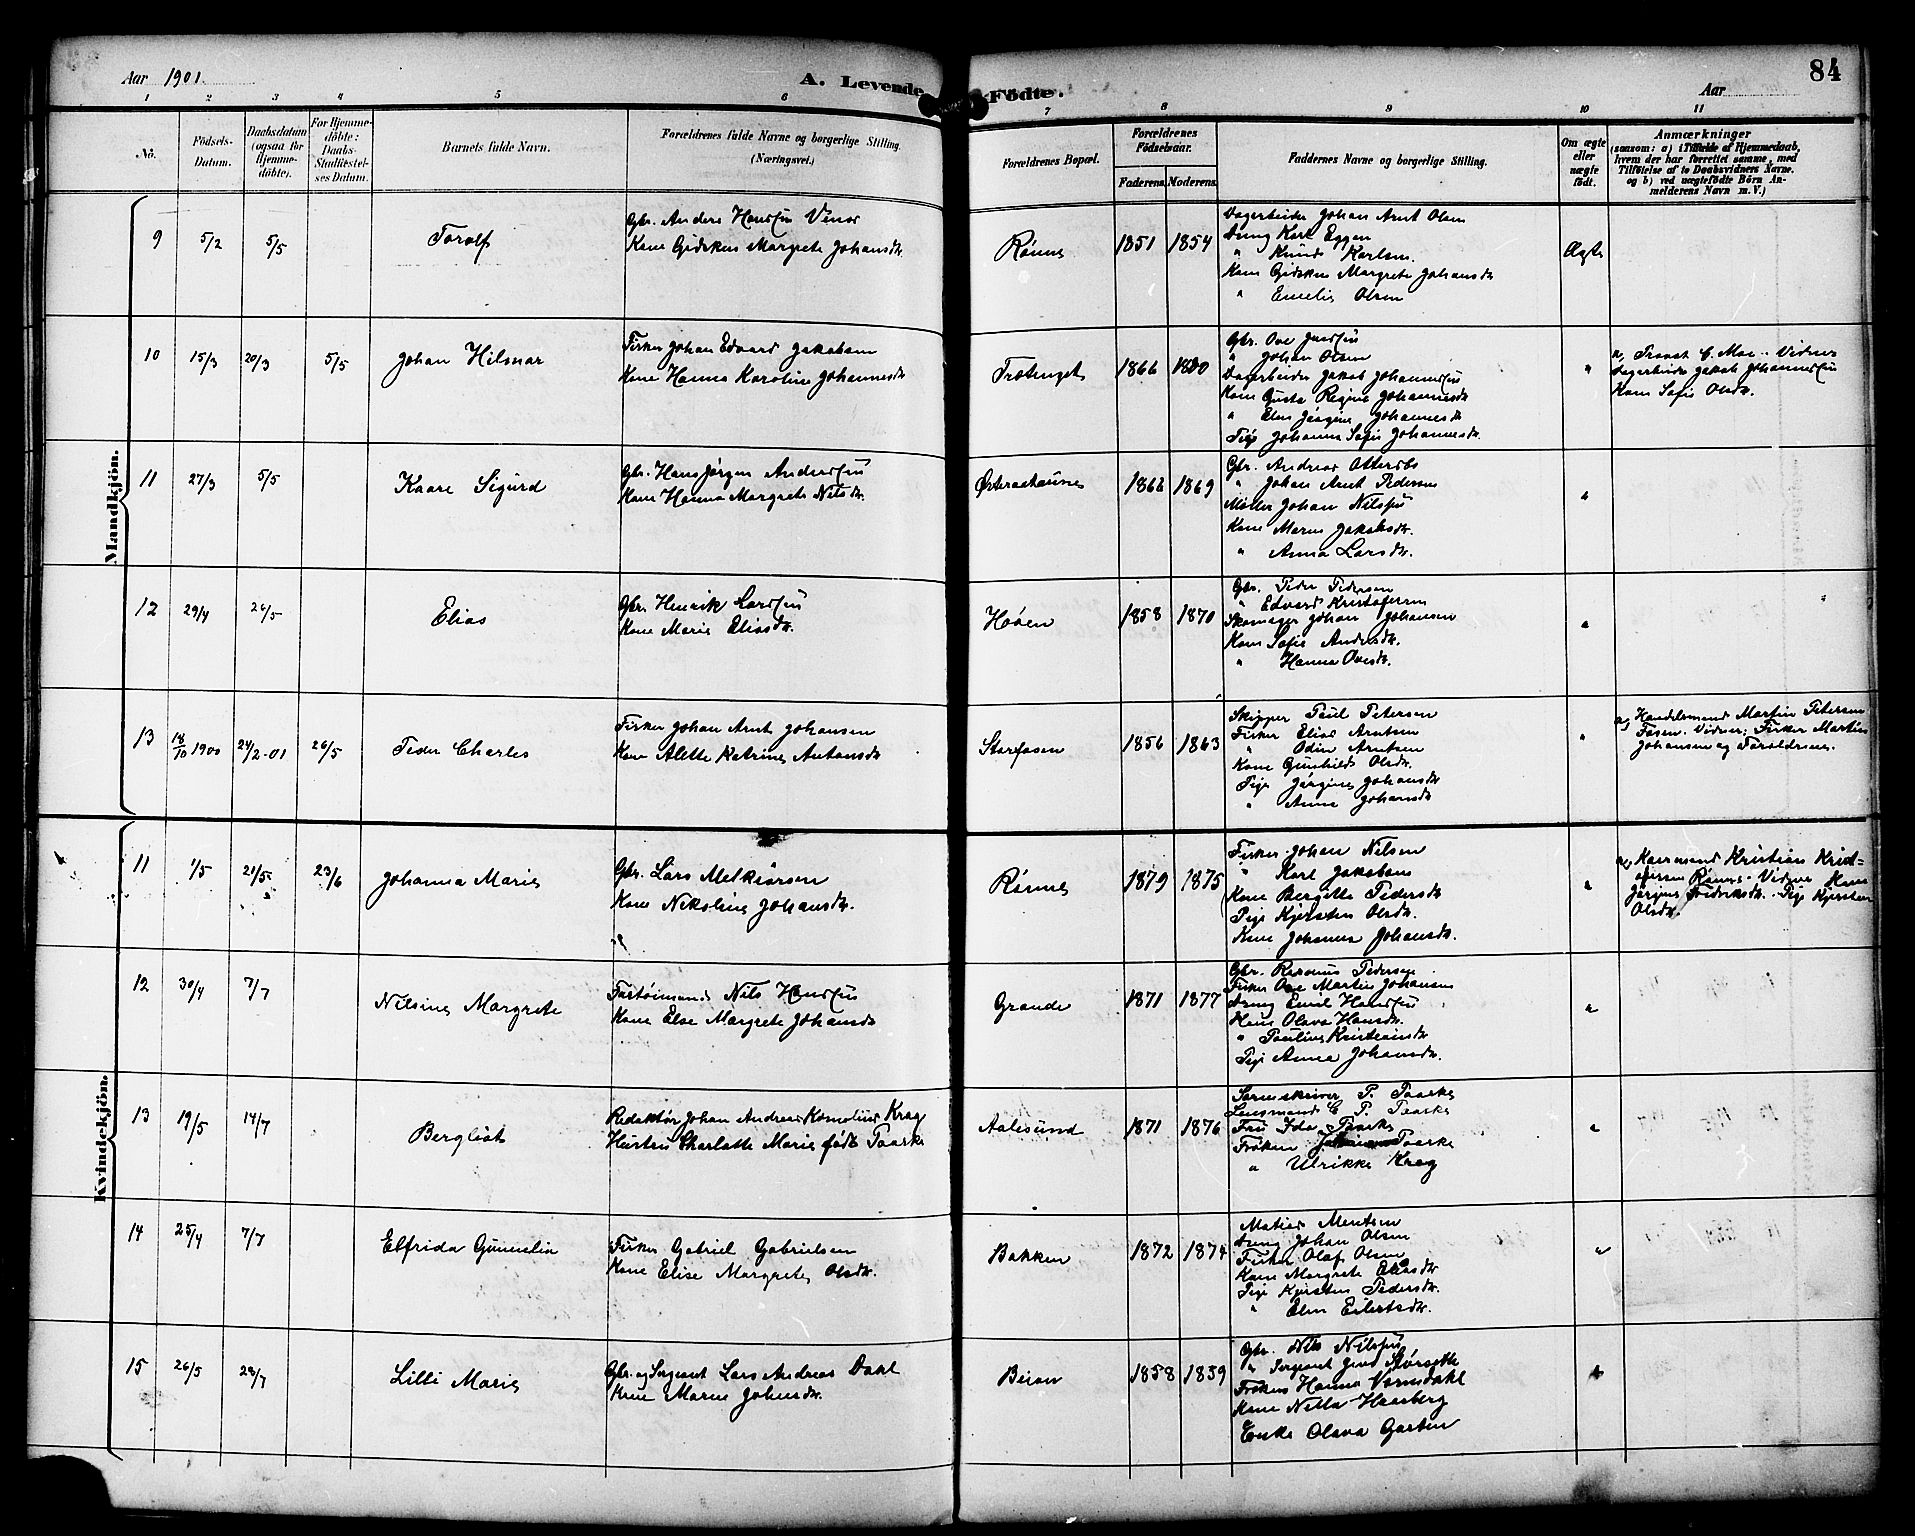 Aar 1901.
A. Levende Födte.
Aar
84
1 2 3 4 5 6 7 8 9 10 11
No.
Födsels-
Datum.
Daabsdatum
(ogsaa for
Hjemme-
döbte).
For Hjemme-
döbte:
Daabs-
Stadfæstel-
ses Datum.
Barnets fulde Navn.
Forældrenes fulde Navne og borgerlige Stilling.
(Næringsvei.)
Forældrenes Bopæl.
Forældrenes
Födselsaar.
Faderens Moderens
Faddernes Navne og borgerlige Stilling.
Om ægte
eller
uægte
født.
Anmærkninger
(saasom: a) i Tilfælde af Hjemmedaab,
hvem der har forrettet samme, med
Tilföielse af to Daabsvidners Navne.
og b) ved uægtefödte Börn An-
melderens Navn m. V.)
Mandkjön.
9 5/2 5/5
Torolf
Gbr. Anders Hansen
Kone Gidsken Margrete Johansdr.
Rønne
1851 1854
Dagarbeider Johan Arnt Olsen
Ungk. Karl Eggen
" Knud Karlsen.
Kone Gidsken Margrete Johansdr.
" Emelie Olsen
Ægte
10 15/3 20/3 5/5
Johan Hilmar
Fisker Johan Edvard Jakobsen
Kone Hanna Karoline Johannesdr.
1866 1880
Gbr. Ove
" Johan Olsen
Dagarbeider Jakob Johannessen
Kone Gusta Regine Johannesdr.
" Elen Jørgine Johannesdr.
Pige Johanna Sofie Johannesdr.
"
a, Provst C. Moe. Vidner
Dagarbeider Jakob Johannessen
Kone Sofie Olsdr.
11 27/3 5/5
Kaare Sigurd
Gbr. Hans Jørgen Anderssen
Kone Hanna Margrete Nilsdr.
1869
Gbr. Andreas
" Johan Arnt Pedersen
Møller Johan Nilssen
Kone Maren Jakobsdr.
" Anna Larsdr.
"
12 29/4 26/5
Elias
Gbr. Henrik Larssen
Kone Marie Eliasdr.
Høøen
1858 1870
Gbr. Peder Pedersen
" Edvard Kristofersen
Skomager Johan Johansen
Kone Sofie Andersdr.
" Hanna Ovesdr.
"
13 18/10 1900 24/2-01 26/5
Peder Charles
Fisker Johan Arnt Johansen
Kone Alette Katrine Antonsdr.
Storfosen
1856 1863
Skipper Paul Petersen
Fisker Elias Arntsen
" Odin Arntsen
Kone Gunhild Olsdr.
Pige Jørgine Johansdr.
" Anna Johansdr.
"
a, Handelsmand Martin Petersen
Fosen. Vidner: Fisker Martin
Johansen og Forældrene.
Kvindekjön.
11 1/5 21/5 23/6
Johanna Marie
Gbr. Lars Melkiorsen
Kone Nikoline Johansdr.
Rønne
1879 1875
Fisker Johan Nilsen
" Karl Jakobsen
Kone Bergitte Pedersdr.
Pige Kjersten Olsdr.
Kone Johanna Johansdr.
"
a, Kaarmand Kristian Krist-
ofersen Rønne. Vidner Kone
Jørgine Fredriksdr. Pige Kjersten
Olsdr.
12 30/4 7/7
Nilsine Margrete
Nils Hanssen
Kone Else Margrete Johansdr.
Grande
1871 1877
Gbr. Rasmus Pedersen
Fisker Ove Martin Johansen
Ungk. Emil Hanssen
Kone Olava Hansdr.
" Pauline Kristiansdr.
Pige Anna Johansdr.
"
13 19/5 14/7
Bergliot
Redaktør Johan Andreas Kornelius Krag
Hustru Charlotte Marie født Paaske
Aalesund
1871 1876
Sorenskriver P. Paaske
Lensmand C. P. Paaske
Fru Ida Paaske
Frøken Paaske
" Ulrikke Krag
"
14 25/4 7/7
Elfrida Gunnelia
Fisker Gabriel Gabrielsen
Kone Elise Margrete Olsdr.
Bakken
1872 1874
Matias Mentsen
Ungk. Johan Olsen
Fisker Olaf Olsen
Kone Margrete Eliasdr.
Pige Kjersten Pedersdr.
" Elen Eilertsdr.
"
15 26/5 28/7
Lilli Marie
Gbr. og Sergeant Lars Andreas Dahl
Kone Maren Johnsdr.
Beian
1858 1859
Gbr. Nils Nilssen
" Sergeant
Frøken Hanna Vormdahl
Kone Nella Haarberg
Enke Olava Garten
"